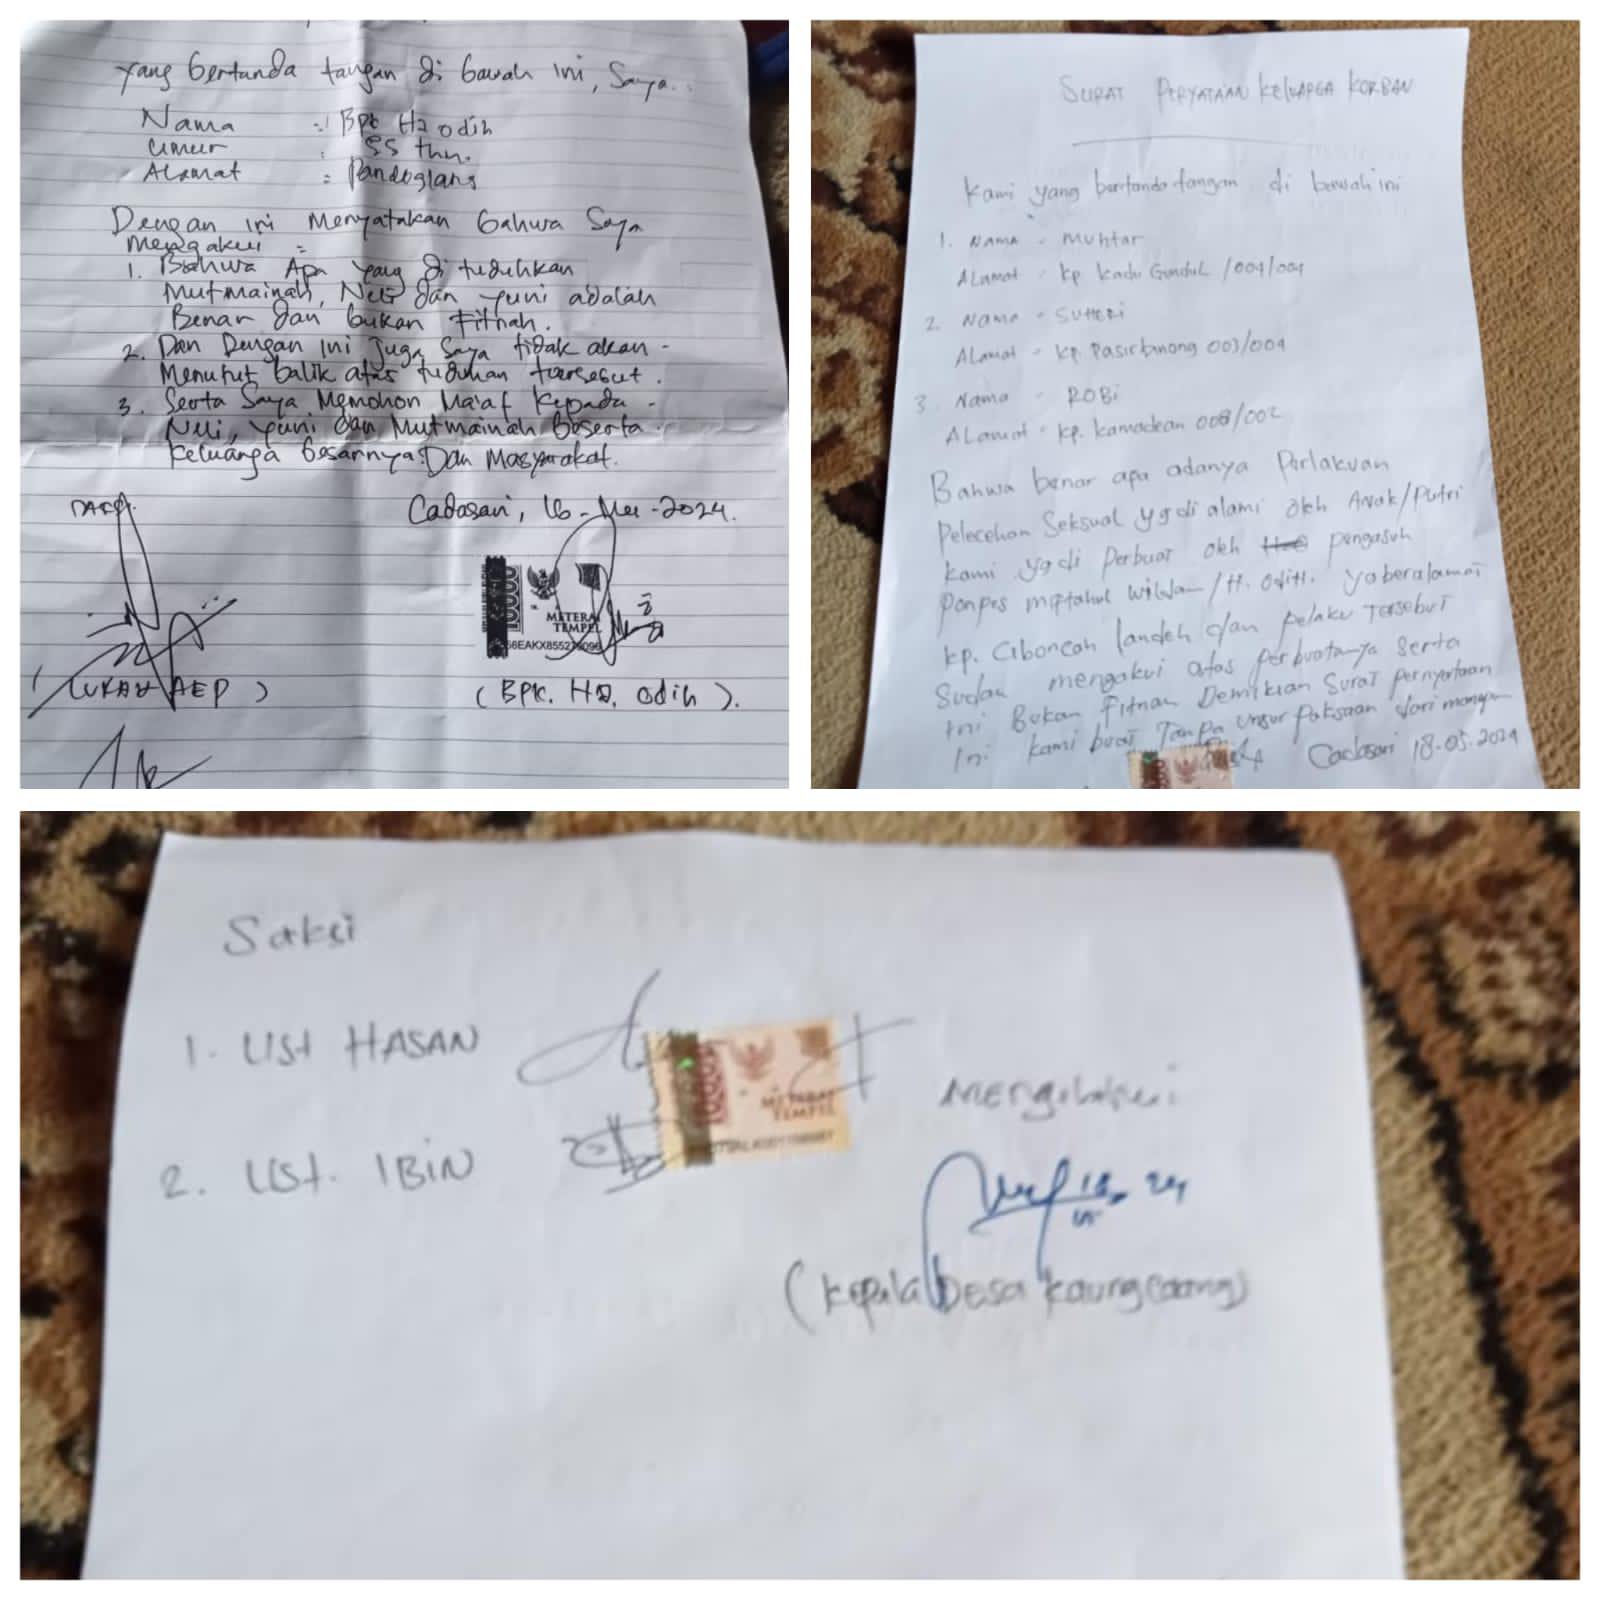 Yang bertanda tangan di bawah ini, Saya..
Nama : Bpk Hz odih
Umur : 55 thn.
Alamat : Pandeglang
Dengan ini Menyatakan bahwa Saya
Mengakui :
1. Bahwa Apa yang di tuduhkan
Mutmainah, Neli dan yuni adalah
Benar dan bukan Fitnah.
2. Dan Dengan ini juga Saya tidak akan -
Menutut balik atas tuduhan tersebut.
3. Serta Saya Memohon Ma'af kepada -
Neli, yuni dan Mutmainah beserta -
keluarga besarnya. Dan Masyarakat.
Cadasari, 16 - Mei - 2024.
METERAI
TEMPEL
AEP )
( Bpk. Hz. odih ).
SURAT PERYATAAN KELUARGA KORBAN
Kami yang bertanda tangan di bawah ini
1. Nama - Muhtar
Alamat - kp kadu Gundul /001/001
2. Nama - SUHERI
Alamat - kp. Pasirbinong 003/001
3. Nama - ROBI
ALamat - kp. kamadean 008/002
Bahwa benar apa adanya Perlakuan
Pelecehan Seksual yg di alami oleh Anak/Putri
kami yg di perbuat oleh pengasuh
Ponpes miptahul /H. Odih. yg beralamat
kp. Ciboncah landeh dan pelaku Tersebut
Sudah mengakui atas perbuatanya Serta
Ini Bukan Fitnah Demikian Surat Pernyataan
Ini kami buat Tanpa unsur paksaan dari
Cadasari 18-05-2024
Saksi
1. Ust HASAN
2. Ust. IBIN
METERAI
TEMPEL
Mengetahui
(kepala Desa )